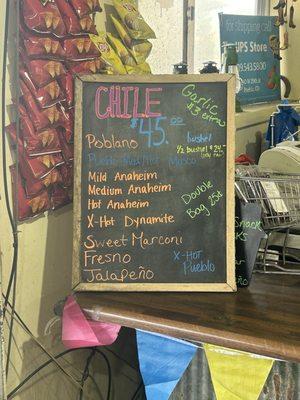 CHILE
$45.00
bushel
Garlic
$3 extra
½ bushel $24
Poblano
Pueblo Mild/Hot Mosco
Mild Anaheim
Medium Anaheim
Hot Anaheim
X-Hot Dynamite
Sweet Marconi
Fresno
Jalapeño
Double
Bag 25¢
X-Hot
Pueblo
for shipping
UPS Store